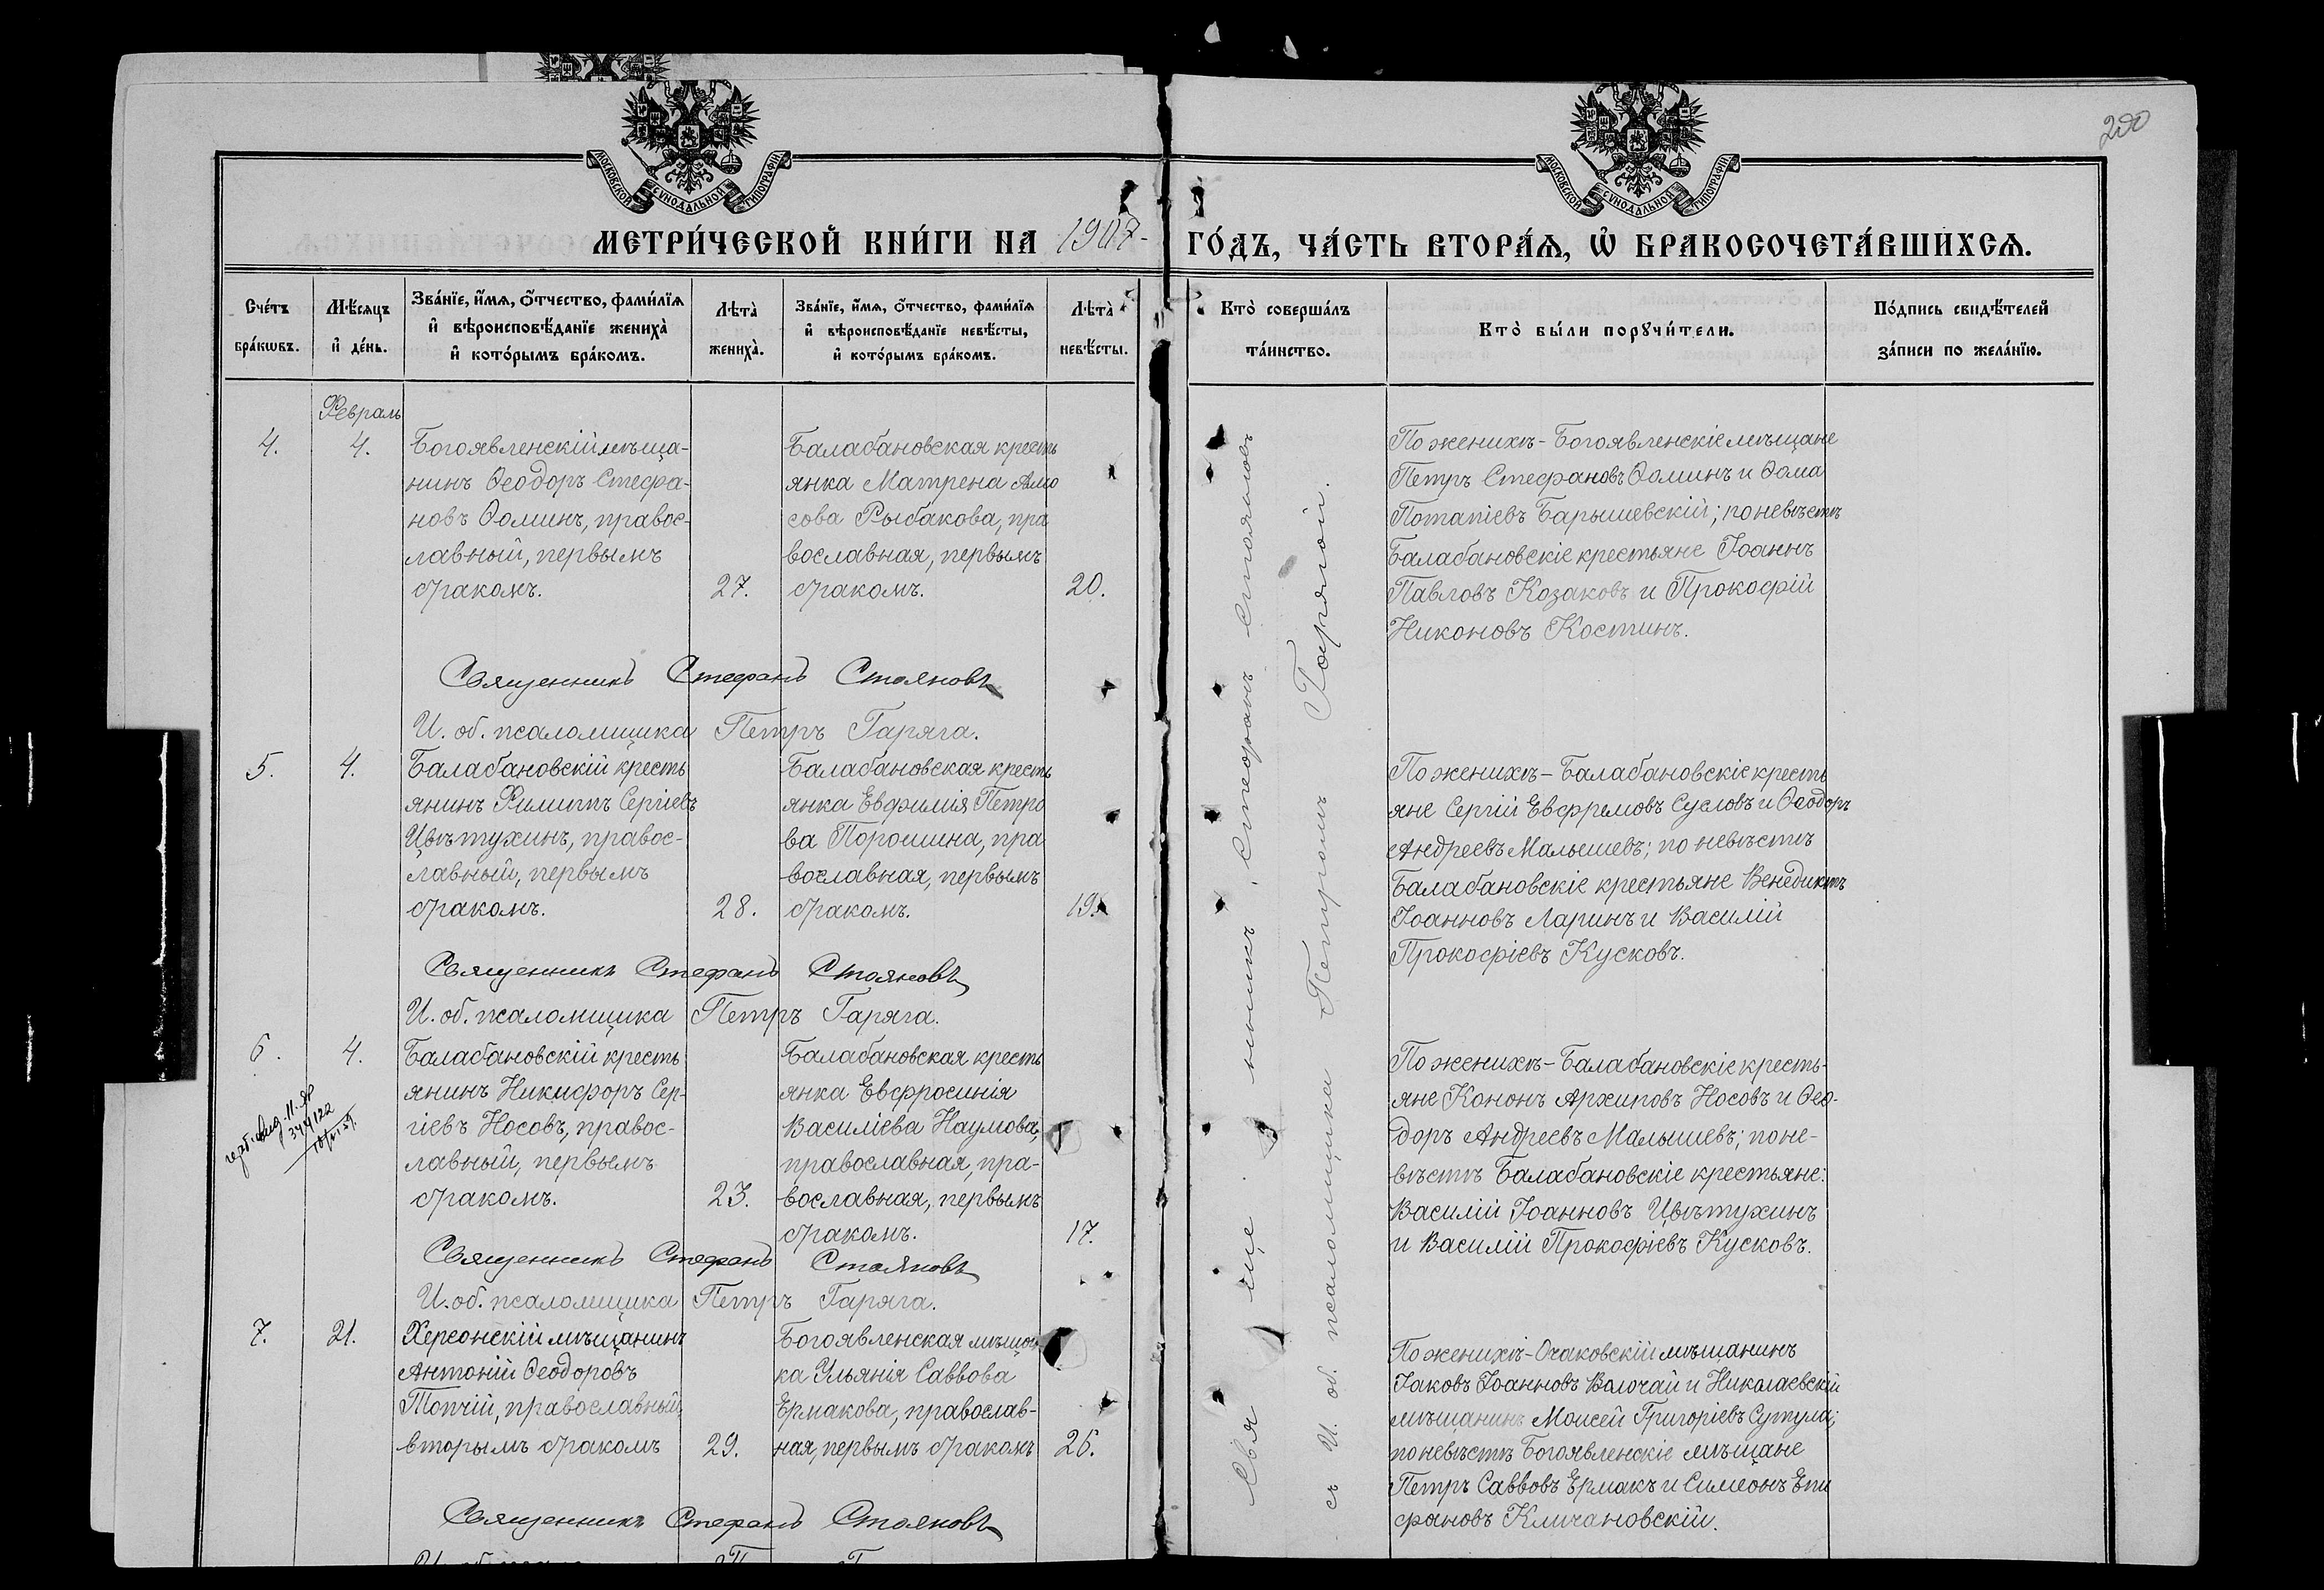 200
МОСКОВСКОЙ СѴНОДАЛЬНОЙ ТИПОГРАФІИ
МОСКОВСКОЙ СѴНОДАЛЬНОЙ ТИПОГРАФІИ
МЕТРИ́ЧЕСКОЙ КНИ́ГИ НА 1907- ГО́ДЪ, ЧА́СТЬ ВТОРА́Ѧ, Ѽ БРАКОСОЧЕТА́ВШИХСѦ.
Сче́тъ
бра́кѡвъ.
Мѣ́сѧцъ
и҆ де́нь.
Зва́нїе, и҆́мѧ, ѻ҆́тчество, фами́лїѧ
и҆ вѣроисповѣ́данїе жениха̀
и҆ кото́рымъ бра́комъ.
Лѣта̀
жениха̀.
Зва́нїе, и҆́мѧ, ѻ҆́тчество, фами́лїѧ
и҆ вѣроисповѣ́данїе невѣ́сты,
и҆ кото́рымъ бра́комъ.
Лѣта̀
невѣ́сты.
Кто̀ соверша́лъ
та́инство.
Кто̀ бы́ли порꙋчи́тели.
По́дпись свидѣ́телей
за́писи по жела́нїю.
Февраль
4.
4.
Богоявленскій мѣща-
нинъ Ѳеодоръ Стефа-
новъ Ѳоминъ, правос-
лавный, первымъ
бракомъ.
27.
Балабановская кресть
янка Матрена Амо
сова Рыбакова, пра
вославная, первымъ
бракомъ.
20.
По женихѣ - Богоявленскіе мѣщане
Петръ Стефановъ Ѳоминъ и Ѳома
Потапіевъ Барышевскій; по невѣстѣ
Балабановскіе крестьяне Іоаннъ
Павловъ Козаковъ и Прокофій
Никоновъ Костинъ.
Священникъ Стефанъ Стояновъ
И. об. псаломщика Петръ Гаряга.
5.
4.
Балабановскій кресть
янинъ Филиппъ Сергіевъ
Цвѣтухинъ, правос-
лавный, первымъ
бракомъ.
28.
Балабановская кресть
янка Евфимія Петро
ва Порошина, пра
вославная, первымъ
бракомъ.
19.
По женихѣ - Балабановскіе кресть
яне Сергій Евфремовъ Сусловъ и Ѳеодоръ
Андреевъ Малышевъ; по невѣстѣ
Балабановскіе крестьяне Венедиктъ
Іоанновъ Ларинъ и Василій
Прокофіевъ Кусковъ.
Священникъ Стефанъ Стояновъ
И. об. псаломщика Петръ Гаряга.
6.
4.
Балабановскій кресть
янинъ Никифоръ Сер-
гіевъ Носовъ, правос-
лавный, первымъ
бракомъ.
23.
Балабановская кресть
янка Евфросинія
Василіева Наумова,
православная, пра-
вославная, первымъ
бракомъ.
17.
По женихѣ - Балабановскіе кресть-
яне Кононъ Архиповъ Носовъ и Ѳео-
доръ Андреевъ Малышевъ; по не-
вѣстѣ Балабановскіе крестьяне:
Василій Іоанновъ Цвѣтухинъ
и Василій Прокофіевъ Кусковъ.
Священникъ Стефанъ Стояновъ
И. об. псаломщика Петръ Гаряга.
7.
21.
Херсонскій мѣщанинъ
Антоній Ѳеодоровъ
Топчій, православный,
вторымъ бракомъ
29.
Богоявленская мѣщан
ка Ульянія Саввова
Ермакова, православ-
ная, первымъ бракомъ
26.
По женихѣ - Очаковскій мѣщанинъ
Іаковъ Іоанновъ Волочай и Николаевскій
мѣщанинъ Моисей Григоріевъ Сутула;
по невѣстѣ Богоявленскіе мѣщане
Петръ Саввовъ Ермакъ и Симеонъ Епи
фановъ Кличановскій.
Священникъ Стефанъ Стояновъ
Свя ще нникъ Стефанъ Стояновъ
съ И. об. псаломщика Петромъ Гарягой.